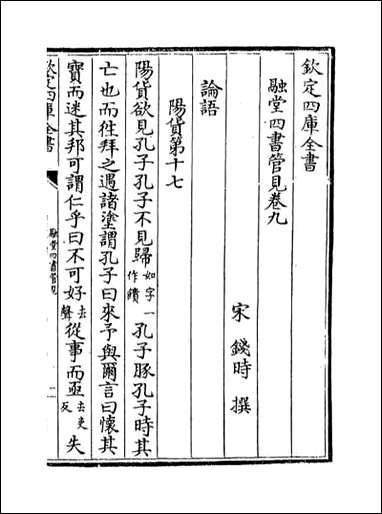 欽定四庫全書
融堂四書管見卷九
宋 錢時 撰
論語
陽貨第十七
陽貨欲見孔子孔子不見歸如字一作饋孔子豚孔子時其
亡也而往拜之遇諸塗謂孔子曰來予與爾言曰懷其
寶而迷其邦可謂仁乎曰不可好去聲從事而亟去吏反失
欽定四庫全書
融堂四書管見
一